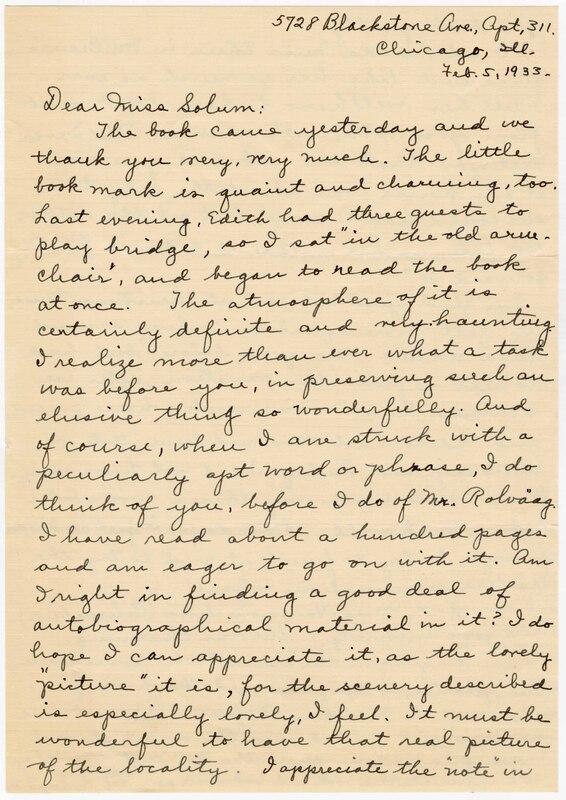 5728 Blackstone Ave., Apt, 311.
Chicago, Ill.
Feb. 5, 1933.
Dear Miss Solum:
The book came yesterday and we
thank you very, very much. The little
book mark is quaint and charming, too.
Last evening, Edith had three guests to
play bridge, so I sat "in the old arm-
chair", and began to read the book
at once. The atmosphere of it is
certainly definite and very haunting.
I realize more than ever what a task
was before you, in preserving such an
elusive thing so wonderfully. And
of course, when I am struck with a
peculiarly apt word or phrase, I do
think of you, before I do of Mr. Rolvaag.
I have read about a hundred pages
and am eager to go on with it. Am
I right in finding a good deal of
autobiographical material in it? I do
hope I can appreciate it, as the lovely
"picture" it is, for the scenery described
is especially lovely, I feel. It must be
wonderful to have that real picture
of the locality. I appreciate the "note" in